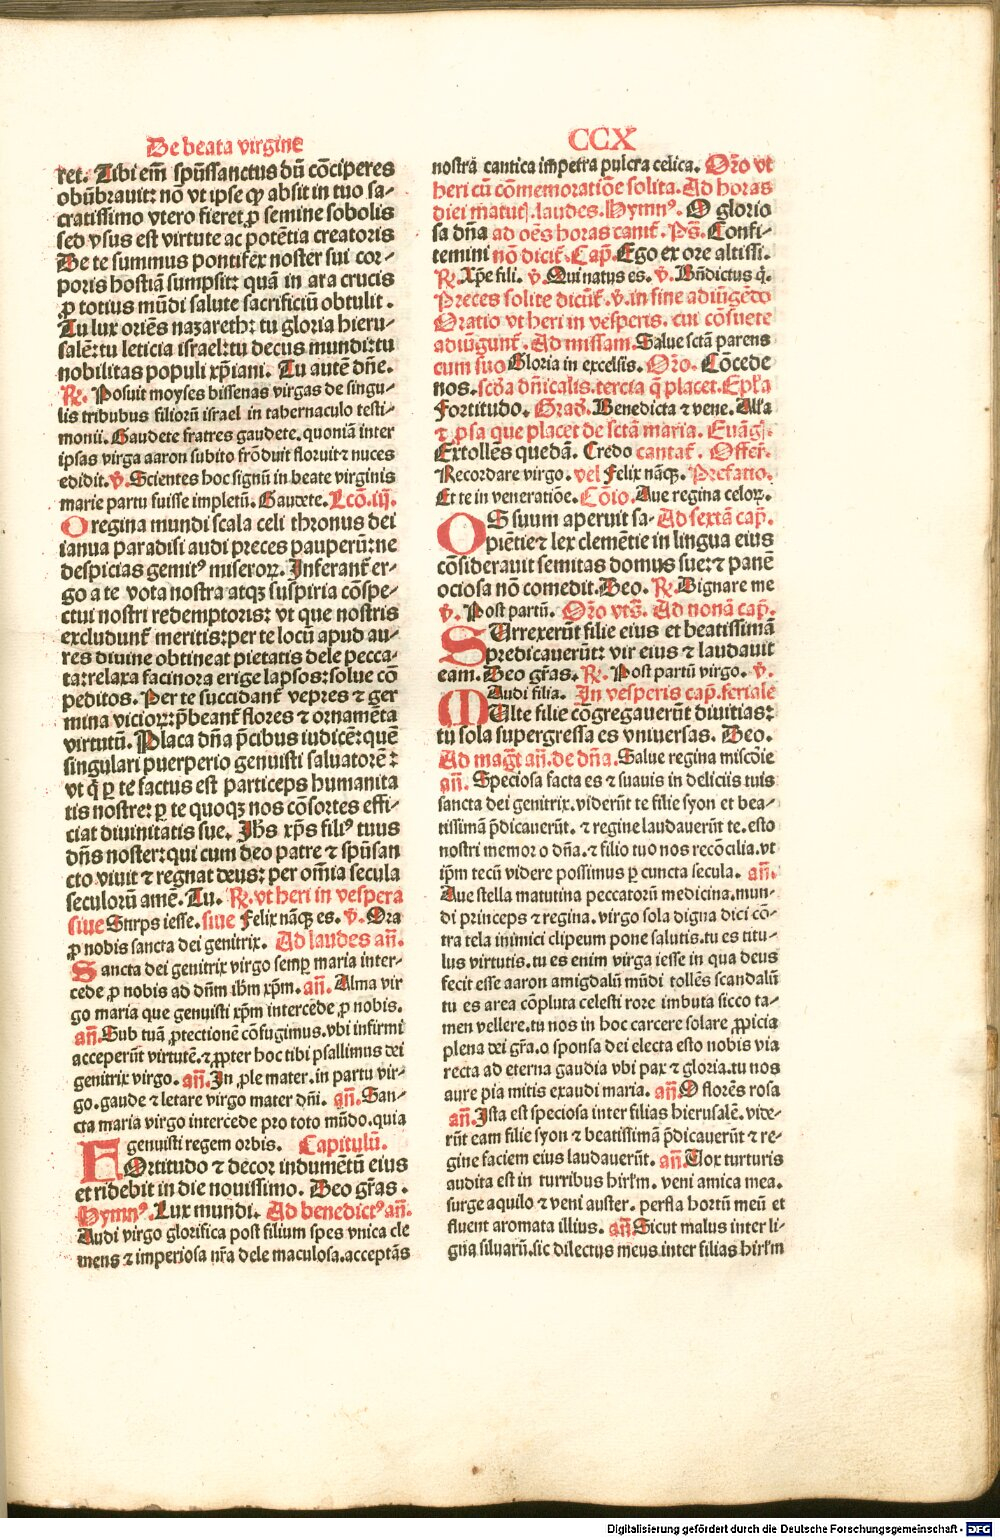 De beata virgine
CCX
ret. Tibi em̄ spūssanctus dū cōciperes
obūbrauit: nō vt ipse qp absit in tuo sa-
cratissimo vtero fieret ꝓ semine sobolis
sed vsus est virtute ac potētia creatoris
De te summus pontifex noster sui cor-
poris hostiā sumpsit: quā in ara crucis
ꝓ totius mūdi salute sacrificiū obtulit.
Tu lux oriēs nazareth: tu gloria hieru-
salē: tu leticia israel: tu decus mundi: tu
nobilitas populi xp̄iani. Tu autē dn̄e.
R̷. Posuit moyses bissenas virgas de singu-
lis tribubus filiorū israel in tabernaculo testi-
monii. Gaudete fratres gaudete. quoniā inter
ipsas virga aaron subito frōduit floruit ⁊ nuces
edidit. v̄. Scientes hoc signū in beate virginis
marie partu fuisse impletū. Gaudete. Lcō. iij.
O regina mundi scala celi thronus dei
ianua paradisi audi preces pauperū: ne
despicias gemitꝰ miseroꝝ. Inferant̄ er-
go a te vota nostra atqꝫ suspiria cōspe-
ctui nostri redemptoris: vt que nostris
excludunt̄ meritis: per te locū apud au-
res diuine obtineat pietatis dele pecca-
ta: relaxa facinora erige lapsos: solue cō
peditos. Per te succidant̄ vepres ⁊ ger
mina vicioꝝ: p̄beant̄ flores ⁊ ornamēta
virtutū. Placa dn̄a p̄cibus iudicē: quē
singulari puerperio genuisti saluatorē:
vt q̄ ꝑ te factus est particeps humanita
tis nostre: ꝑ te quoqꝫ nos cōsortes effi-
ciat diuinitatis sue. Jhs xp̄s filiꝰ tuus
dn̄s noster: qui cum deo patre ⁊ spūsan
cto viuit ⁊ regnat deus: per om̄ia secula
seculorū amē. Tu. R̷. vt heri in vespera
siue Stirps iesse. siue Felix nāqꝫ es. v̄. Ora
ꝓ nobis sancta dei genitrix. Ad laudes an̄.
Sancta dei genitrix virgo semꝑ maria inter-
cede ꝓ nobis ad dn̄m ihm̄ xp̄m. an̄. Alma vir
go maria que genuisti xp̄m intercede ꝓ nobis.
an̄. Sub tuā ꝓtectionē cōfugimus. vbi infirmi
acceperūt virtutē. ⁊ ꝓpter hoc tibi psallimus dei
genitrix virgo. an̄. In ꝓle mater. in partu vir-
go. gaude ⁊ letare virgo mater dn̄i. an̄. San-
cta maria virgo intercede pro toto mūdo. quia
genuisti regem orbis. Capitulū.
FOrtitudo ⁊ decor indumētū eius
et ridebit in die nouissimo. Deo gr̄as.
Hymnꝰ. Lux mundi. Ad benedictꝰ an̄.
Audi virgo glorifica post filium spes vnica cle
mens ⁊ imperiosa nr̄a dele maculosa. acceptās
nostrā cantica impetra pulcra celica. Or̄o vt
heri cū cōmemoratiōe solita. Ad horas
diei matut̄. laudes. Hymnꝰ. O glorio
sa dn̄a ad oēs horas canit̄. Ps̄. Confi-
temini nō dicit̄. Cap̄. Ego ex ore altissi.
R̷. Xp̄e fili. v̄. Qui natus es. v̄. Bn̄dictus q̄.
Preces solite dicūt̄. v̄. in fine adiūgēdo
Oratio vt heri in vesperis. cui cōsuete
adiūgunt̄. Ad missam. Salue sctā parens
cum suo Gloria in excelsis. Or̄o. Cōcede
nos. scd̄a dn̄icalis. tercia q̄ placet. Epl̄a
Fortitudo. Grad̄. Benedicta ⁊ vene. All'a
⁊ ꝓsa que placet de sctā maria. Euāgꝭ.
Extollēs quedā. Credo cantat̄. Offer̄.
Recordare virgo. vel Felix nāqꝫ. Prefatio.
Et te in veneratiōe. Cōio. Aue regina celoꝝ.
OS suum aperuit sa- Ad sextā cap̄.
piētie ⁊ lex clemētie in lingua eius
cōsiderauit semitas domus sue: ⁊ panē
ociosa nō comedit. Deo. R̷. Dignare me
v̄. Post partū. Or̄o vts̄. Ad nonā cap̄.
SUrrexerūt filie eius et beatissimā
predicauerūt: vir eius ⁊ laudauit
eam. Deo gr̄as. R̷. Post partū virgo. v̄.
Audi filia. In vesperis cap̄. feriale
MUlte filie cōgregauerūt diuitias:
tu sola supergressa es vniuersas. Deo.
Ad magt̄ an̄. de dn̄a. Salue regina miscd̄ie
an̄. Speciosa facta es ⁊ suauis in deliciis tuis
sancta dei genitrix. viderūt te filie syon et bea-
tissimā p̄dicauerūt. ⁊ regine laudauerūt te. esto
nostri memor o dn̄a. ⁊ filio tuo nos recōcilia. vt
ip̄m tecū videre possimus ꝑ cuncta secula. an̄.
Aue stella matutina peccatorū medicina. mun-
di princeps ⁊ regina. virgo sola digna dici cō-
tra tela inimici clipeum pone salutis. tu es titu-
lus virtutis. tu es enim virga iesse in qua deus
fecit esse aaron amigdalū mūdi tollēs scandalū
tu es area cōpluta celesti roze imbuta sicco ta-
men vellere. tu nos in hoc carcere solare ꝓpicia
plena dei gr̄a. o sponsa dei electa esto nobis via
recta ad eterna gaudia vbi pax ⁊ gloria. tu nos
aure pia mitis exaudi maria. an̄. O florēs rosa
an̄. Ista est speciosa inter filias hierusalē. vide-
rūt eam filie syon ⁊ beatissimā p̄dicauerūt ⁊ re-
gine faciem eius laudauerūt. an̄. Uox turturis
audita est in turribus hirl'm. veni amica mea.
surge aquilo ⁊ veni auster. perfla hortū meū et
fluent aromata illius. an̄. Sicut malus inter li-
gna siluarū. sic dilectus meus inter filias hirl'm
Digitalisierung gefördert durch die Deutsche Forschungsgemeinschaft - DFG